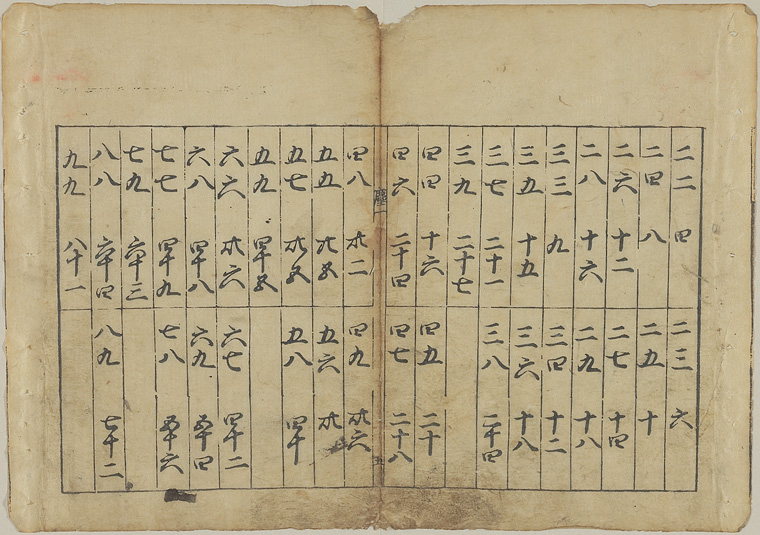 二二 四 二三 六
二四 八 二五 十
二六 十二 二七 十四
二八 十六 二九 十八
三三 九 三四 十二
三五 十五 三六 十八
三七 二十一 三八 二十四
三九 二十七
四四 十六 四五 二十
四六 二十四 四七 二十八
四八 卅二 四九 卅六
五五 廿五 五六 卅
五七 卅五 五八 四十
五九 四十五
六六 卅六 六七 四十二
六八 四十八 六九 五十四
七七 四十九 七八 五十六
七九 六十三
八八 六十四 八九 七十二
九九 八十一